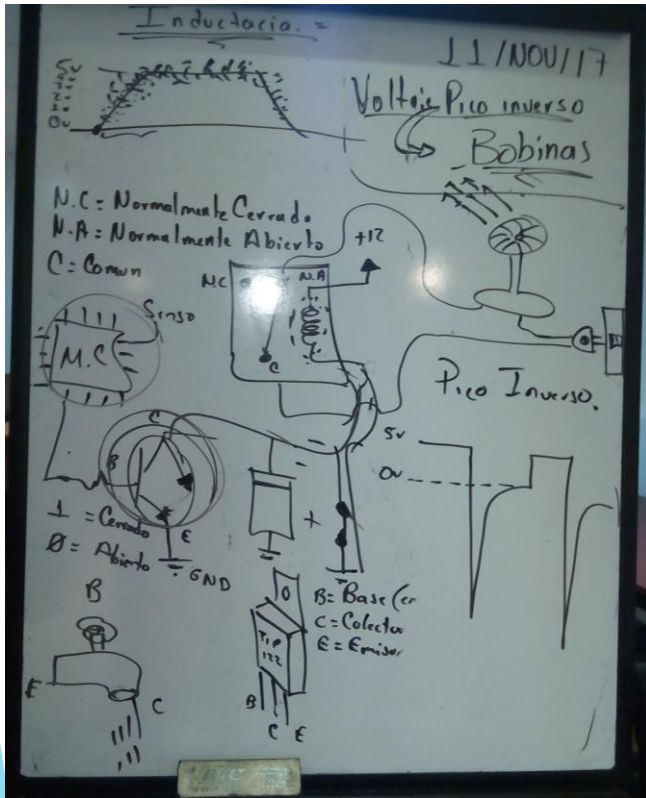 Inductacia.=
11/NOV/17
5v
0v
Voltaje Pico inverso
Bobinas
N.C = Normalmente Cerrado
N.A = Normalmente Abierto
C = Comun
+12
NC
N.A
C
Senso
M.C
Pico Inverso.
5v
0v
C
B
E
1 = Cerrado
0 = Abierto
GND
+
B= Base (er
C= Colector
E= Emisor
TIP
122
B
C
E
B
E
C
BIC